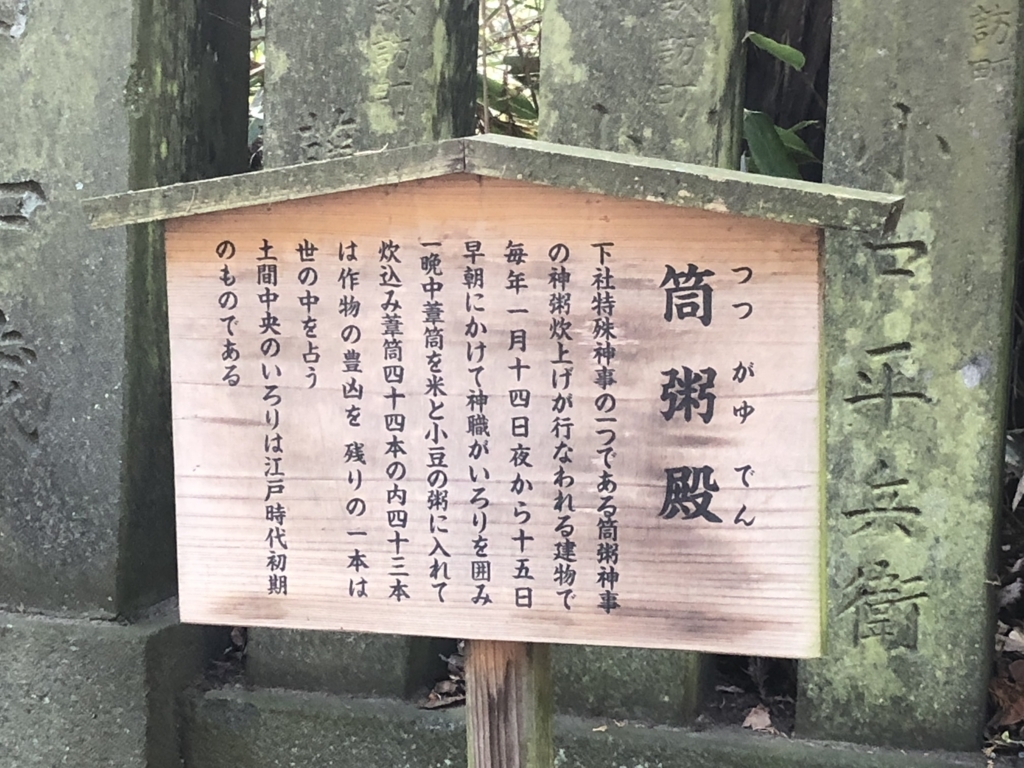 筒粥殿
つつ がゆ でん
下社特殊神事の一つである筒粥神事
の神粥炊上げが行なわれる建物で
毎年一月十四日夜から十五日
早朝にかけて神職がいろりを囲み
一晩中葦筒を米と小豆の粥に入れて
炊込み葦筒四十四本の内四十三本
は作物の豊凶を 残りの一本は
世の中を占う
土間中央のいろりは江戸時代初期
のものである
訪町
小口平兵衛
諏訪町
訪町